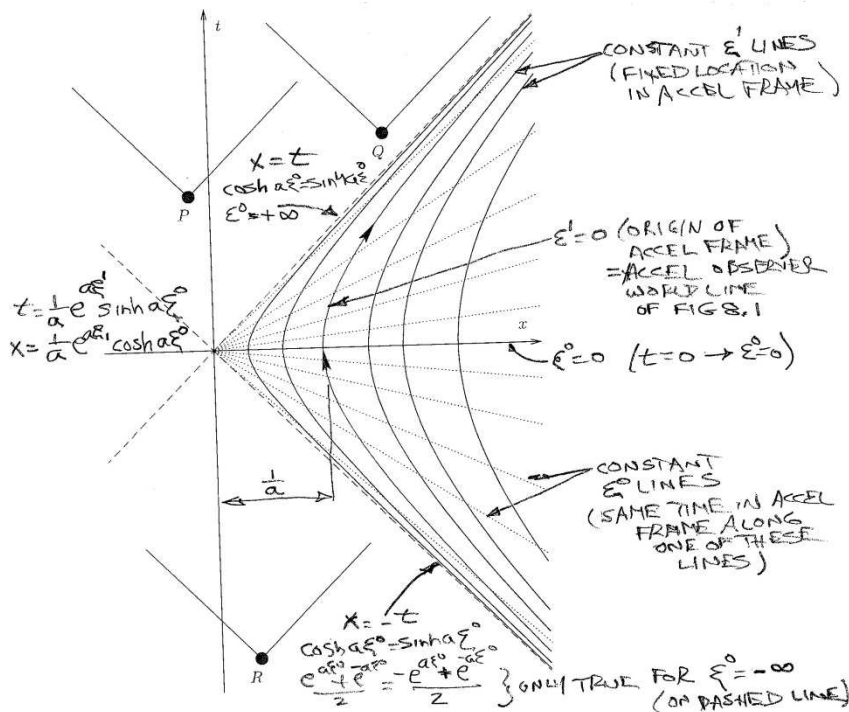 t
CONSTANT ξ¹ LINES
(FIXED LOCATION
IN ACCEL FRAME)
Q
x = t
cosh aξ⁰ = sinh aξ⁰
ξ⁰ = +∞
P
ξ¹ = 0 (ORIGIN OF
ACCEL FRAME)
= ACCEL OBSERVER
WORLD LINE
OF FIG 8.1
t = 1/a e^{aξ¹} sinh aξ⁰
x = 1/a e^{aξ¹} cosh aξ⁰
x
ξ⁰ = 0 (t = 0 → ξ⁰ = 0)
1/a
CONSTANT
ξ⁰ LINES
(SAME TIME IN ACCEL
FRAME ALONG
ONE OF THESE
LINES)
R
x = -t
cosh aξ⁰ = sinh aξ⁰
(e^{aξ⁰} + e^{-aξ⁰})/2 = (-e^{aξ⁰} + e^{-aξ⁰})/2 } ONLY TRUE FOR ξ⁰ = -∞
(ON DASHED LINE)